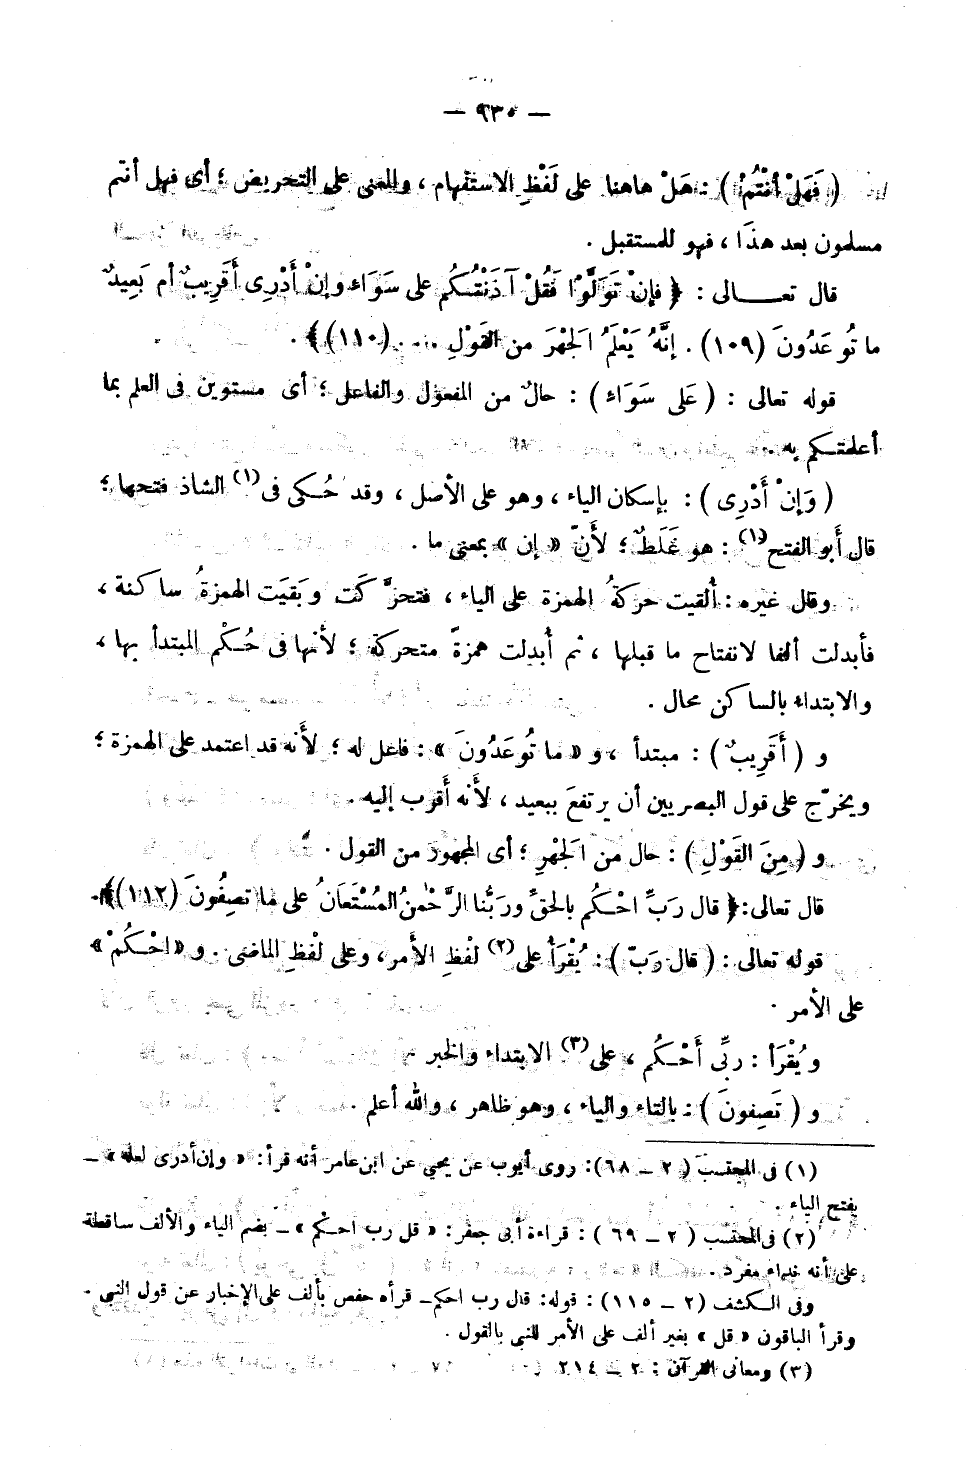 — ٩٣٥ —
( فَهَلْ أَنْتُمْ ) : هَلْ هاهنا على لَفْظِ الاستفهام ، والمعنى على التحريض ؛ أى فهل أنتم
مسلمون بعد هذا ، فهو للمستقبل .
قال تعـــالى : ﴿ فإنْ تَوَلَّوْا فَقُلْ آذَنْتُـكُم على سَوَاء وإنْ أَدْرِى أَقَرِيبٌ أم بَعِيدٌ
ما تُوعَدُونَ (١٠٩) . إنَّهُ يَعْلَمُ الجَهْرَ من القَوْلِ ... (١١٠)﴾ .
قوله تعالى : ( عَلَى سَوَاء ) : حالٌ من المفعول والفاعل ؛ أى مستوين فى العلم بما
أعلمتـكم به .
( وَإِنْ أَدْرِى ) : بإسكان الياء ، وهو على الأصل ، وقد حُـكى فى(١) الشاذ فتحها ؛
قال أبو الفتح(١) : هو غَلَطٌ ؛ لأنّ « إن » بمعنى ما .
وقال غيره : أُلقيت حركةُ الهمزة على الياء ، فتحرَّكت وبَقيَت الهمزةُ ساكنة ،
فأبدلت ألفا لانفتاح ما قبلها ، ثم أُبدلت همزةً متحركة ؛ لأنها فى حُـكْم المبتدأ بها ،
والابتداء بالساكن محال .
و ( أَقَرِيبٌ ) : مبتدأ ، و « ما تُوعَدُونَ » : فاعل له ؛ لأَنه قد اعتمد على الهمزة ؛
ويخرّج على قول البصريين أن يرتفعَ ببعيد ، لأَنه أَقرب إليه .
و ( مِنَ القَوْلِ ) : حال من الجَهْرِ ؛ أى المجهور من القول .
قال تعالى : ﴿ قال رَبِّ احْكُم بالحقِّ ورَبُّنا الرَّحْمٰنُ المُسْتَعَانُ على ما تصِفُونَ (١١٢)﴾ .
قوله تعالى : ( قال رَبّ ) : يُقْرَأُ على(٢) لفْظِ الأمر ، وعلى لفْظِ الماضى . و « احْكُمْ »
على الأمر .
ويُقْرَأ : ربِّى أَحْـكُم ، على(٣) الابتداء والخبر .
و ( تَصِفونَ ) : بالتاء والياء ، وهو ظاهر ، والله أعلم .
(١) فى المحتسب ( ٢ – ٦٨ ) : روى أيوب عن يحيى عن ابن عامر أنه قرأ : « وإن أدرى لعله » –
بفتح الياء .
(٢) فى المحتسب ( ٢ – ٦٩ ) : قراءة أبى جعفر : « قل رب احكم » – بضم الياء والألف ساقطة
على أنه نداء مفرد .
وفى الـكشف (٢ – ١١٥) : قوله : قال رب احكم – قرأه حفص بألف على الإخبار عن قول النبى .
وقرأ الباقون « قل » بغير ألف على الأمر للنبى بالقول .
(٣) ومعانى القرآن : ٢ – ٢١٤